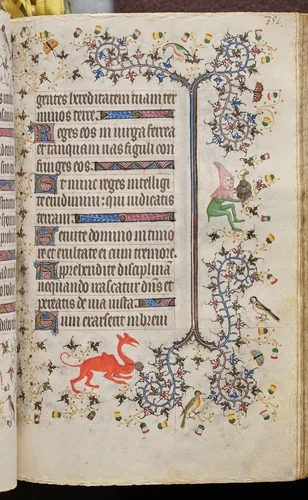 gentes hereditatem tuam: et ter
minos terre.
Reges eos in uirga ferrea
et tanquam uas figuli con
fringes eos.
Et nunc reges intelligi
te erudimini: qui iudicatis
terram.
Seruite domino in timo
re et exultate ei cum tremore.
Apprehendite disciplinam
nequando irascatur dominus et
pereatis de uia iusta.
Cum exarserit in breui